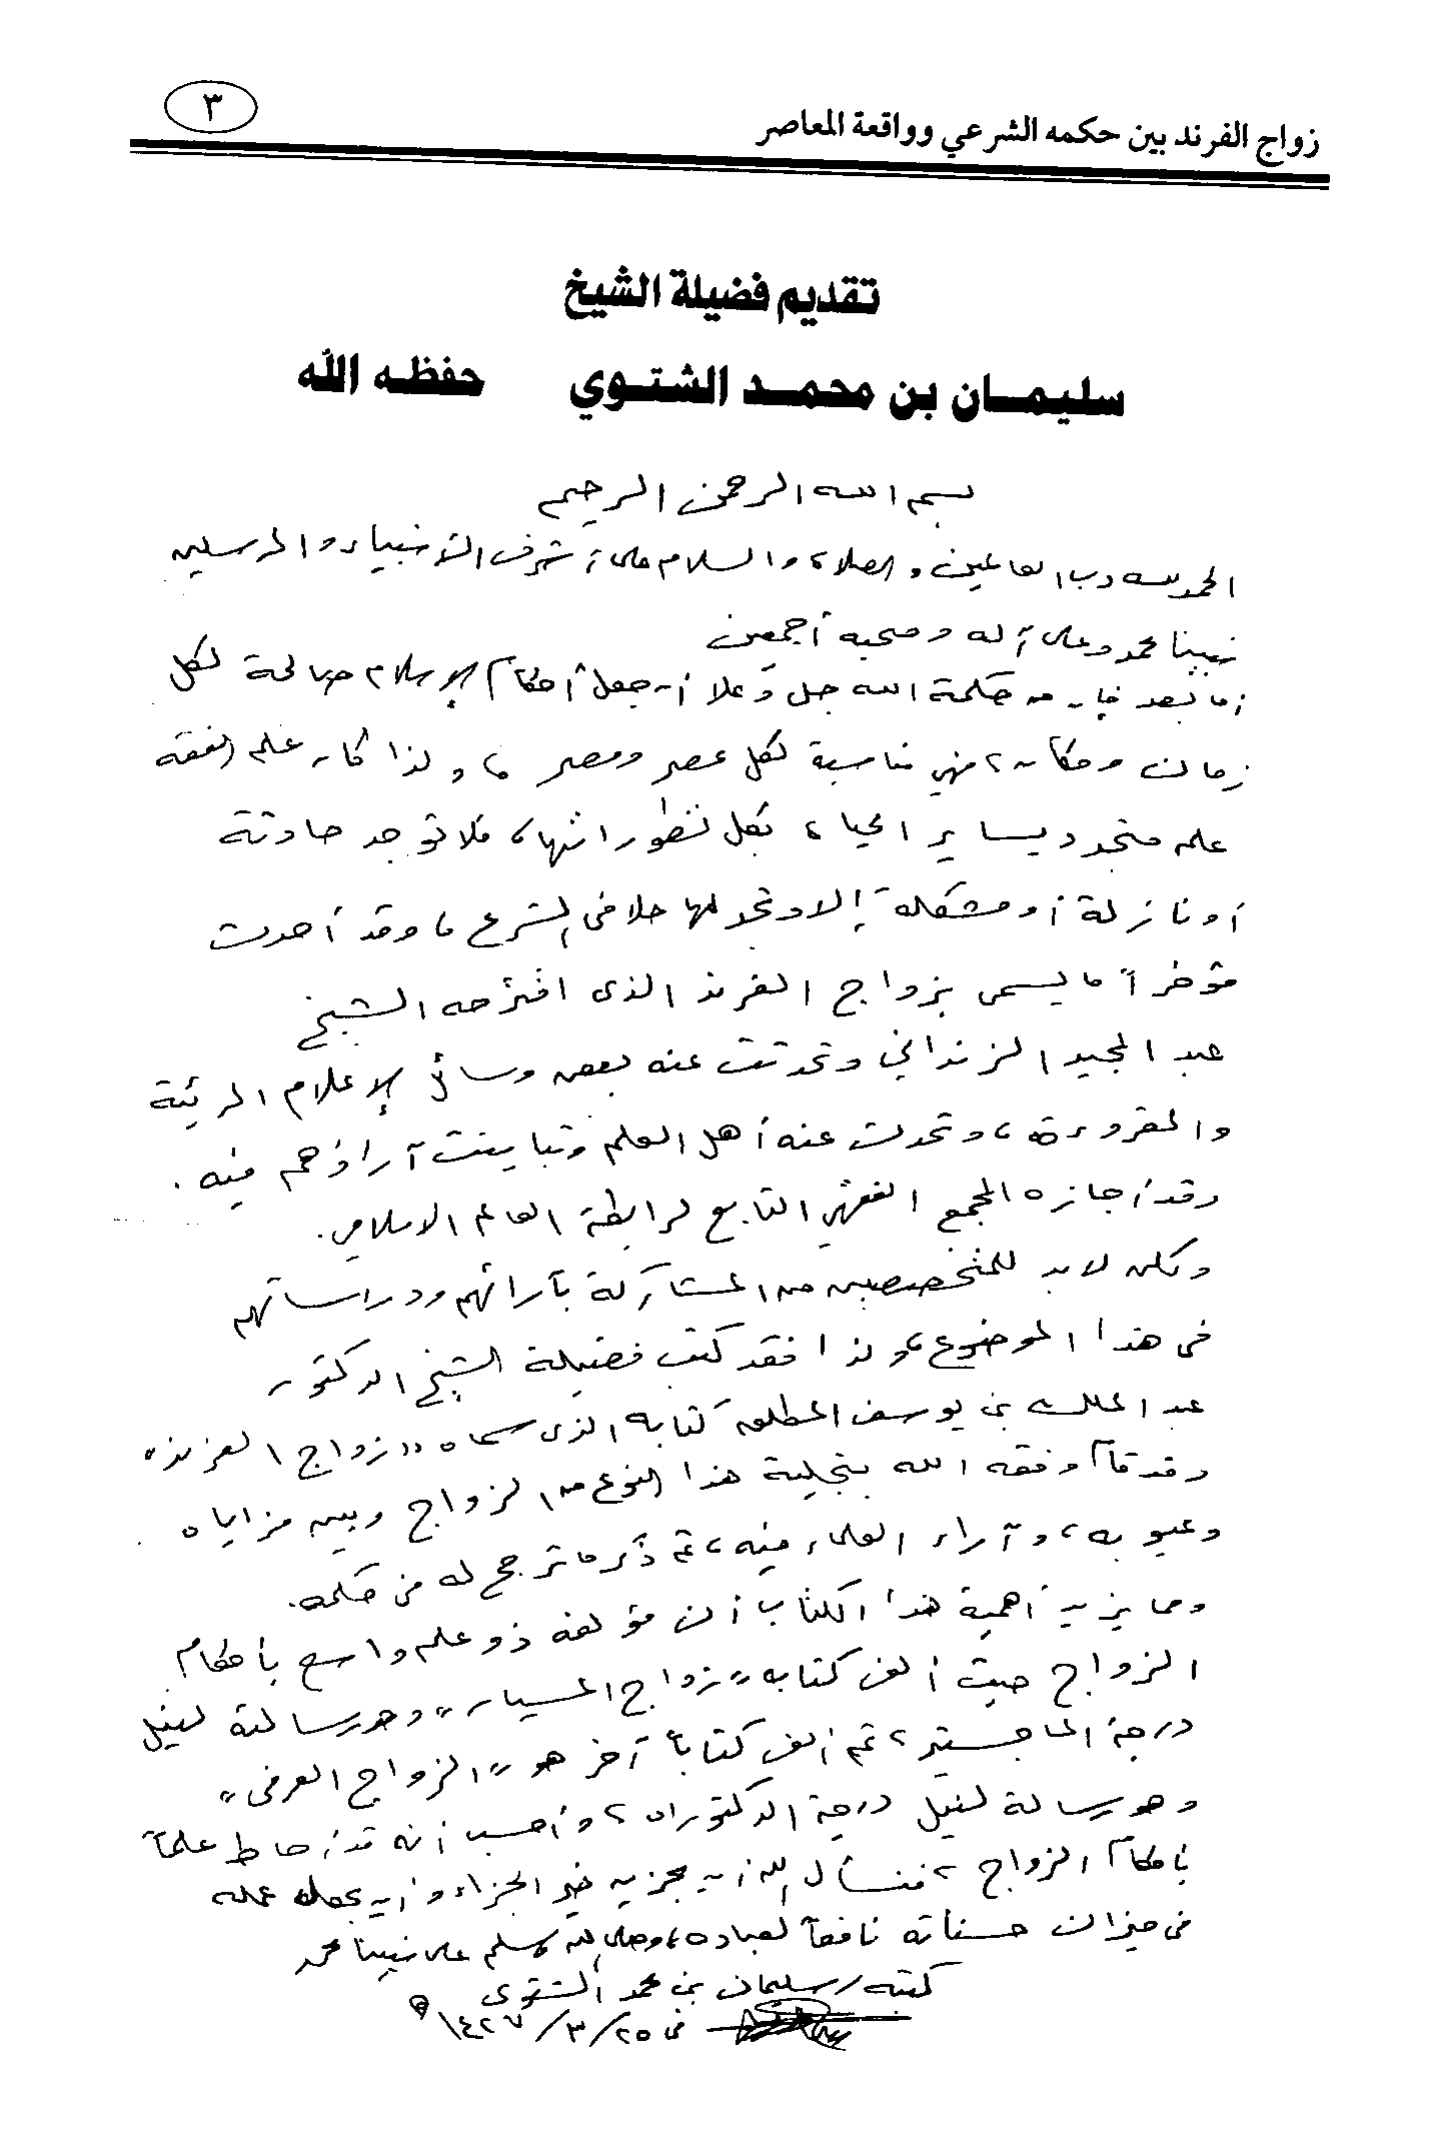 ٣
زواج الفرند بين حكمه الشرعي وواقعة المعاصر
تقديم فضيلة الشيخ
سليمان بن محمد الشتوي حفظه الله
بسم الله الرحمن الرحيم
الحمد لله رب العالمين والصلاة والسلام على أشرف الأنبياء والمرسلين
نبينا محمد وعلى آله وصحبه أجمعين
أما بعد فإن من حكمة الله جل وعلا أن جعل أحكام الإسلام صالحة لكل
زمان ومكان، فهي مناسبة لكل عصر ومصر، ولذا كان علم الفقه
علم متجدد يساير الحياة بكل تطوراتها، فلا توجد حادثة
أو نازلة أو مشكلة إلا وتجد لها حلا في الشرع، وقد أحدث
مؤخراً ما يسمى بزواج الفرند الذي اقترحه الشيخ
عبد المجيد الزنداني وتحدثت عنه بعض وسائل الإعلام المرئية
والمقروءة، وتحدث عنه أهل العلم وتباينت آراؤهم فيه.
وقد أجازه المجمع الفقهي التابع لرابطة العالم الاسلامي.
ولكن لا بد للمتخصصين من المشاركة بآرائهم ودراساتهم
في هذا الموضوع، ولذا فقد كتب فضيلة الشيخ الدكتور
عبد الملك بن يوسف المطلق كتابه الذي سماه "زواج الفرند"
وقد قام وفقه الله بتجلية هذا النوع من الزواج وبين مزاياه
وعيوبه، وآراء العلماء فيه، ثم ذكر ما ترجح له من حكمه.
ومما يزيد أهمية هذا الكتاب أن مؤلفه ذو علم واسع بأحكام
الزواج حيث ألف كتابه "زواج المسيار" وهو رسالة لنيل
درجة الماجستير، ثم ألف كتاباً آخر هو "الزواج العرفي"
وهو رسالة لنيل درجة الدكتوراه، وأحسب أنه قد أحاط علماً
بأحكام الزواج، فنسأل الله أن يجزيه خير الجزاء وأن يجعل عمله
في ميزان حسناته نافعاً لعباده، وصلى الله وسلم على نبينا محمد
كتبه / سليمان بن محمد الشتوي
في ٢٥/٣/١٤٢٧ هـ